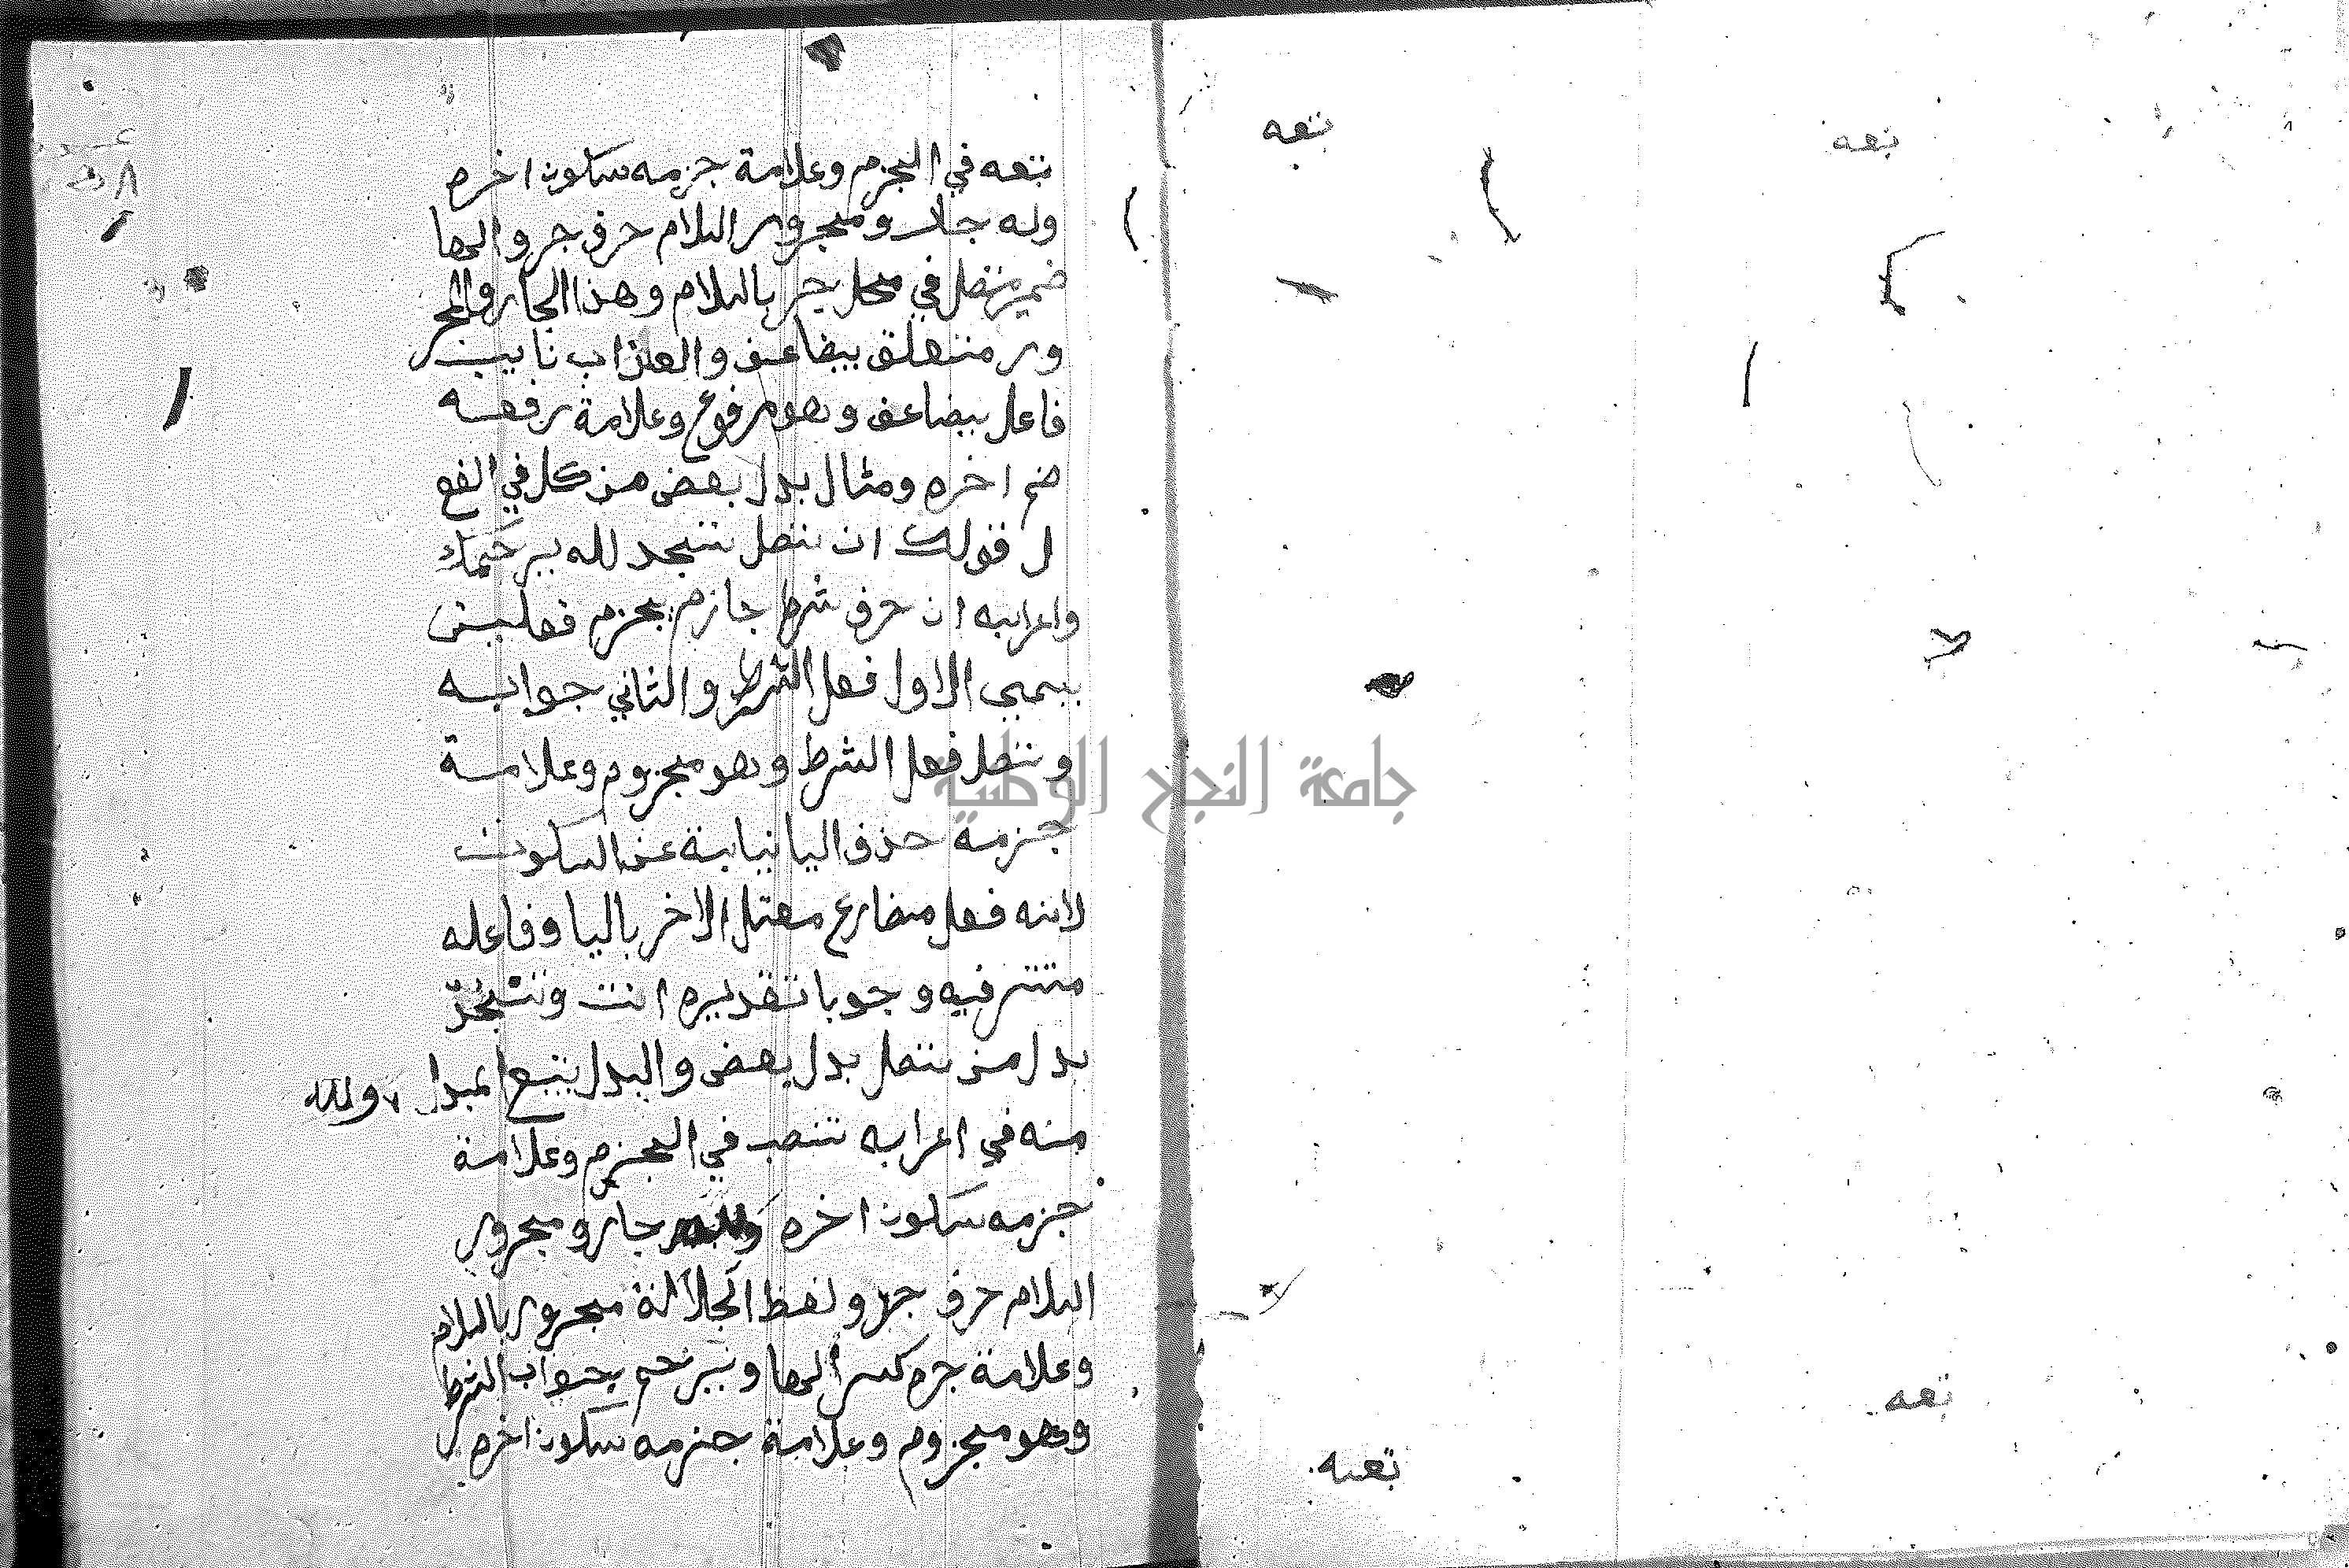 تبعه في الجزم وعلامة جزمه سكون اخره
وله جار ومجرور اللام حرف جر والها
ضمير متصل في محل جر باللام وهذا الجار والمجر
ور متعلق بيضاعف والعذاب نايب
فاعل بيضاعف وهو مرفوع وعلامة رفعه
ضم اخره ومثال بدل بعض من كل في الفع
ل قولك ان تصل تسجد لله يرحمك
واعرابه ان حرف شرط جازم يجزم فعلين
يسمى الاول فعل الشرط والثاني جوابه
وتصل فعل الشرط وهو مجزوم وعلامة
جزمه حذف اليا نيابة عن السكون
لانه فعل مضارع معتل الاخر باليا وفاعله
مستتر فيه وجوبا تقديره انت وتسجد
بدل من تصل بدل بعض والبدل يتبع المبدل ولله
منه في اعرابه تبعه في الجزم وعلامة
جزمه سكون اخره جار ومجرور
اللام حرف جر ولفظ الجلالة مجرور باللام
وعلامة جره كسر الها ويرحم جواب الشرط
وهو مجزوم وعلامة جزمه سكون اخره
تبعه
تبعه
تبعه
تبعه
جامعة النجاح الوطنية